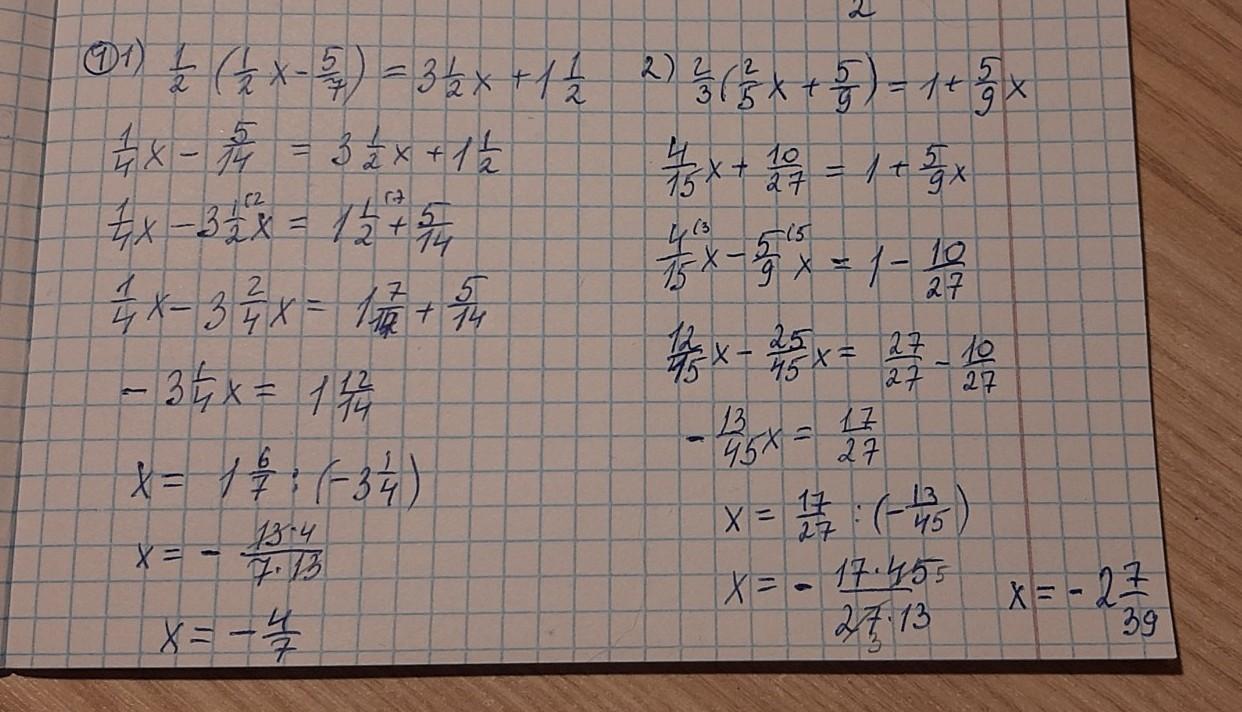 2
9 1) 1/2 (1/2 x - 5/7) = 3 1/2 x + 1 1/2
1/4 x - 5/14 = 3 1/2 x + 1 1/2
1/4 x - 3 1/2 (2 x = 1 1/2 (7 + 5/14
1/4 x - 3 2/4 x = 1 7/14 + 5/14
- 3 1/4 x = 1 12/14
x = 1 6/7 : (-3 1/4)
x = - 13·4/7·13
x = - 4/7
2) 2/3 (2/5 x + 5/9) = 1 + 5/9 x
4/15 x + 10/27 = 1 + 5/9 x
4/15 (3 x - 5/9 (5 x = 1 - 10/27
12/45 x - 25/45 x = 27/27 - 10/27
- 13/45 x = 17/27
x = 17/27 : (- 13/45)
x = - 17·45 5/27·13 3
x = - 2 7/39